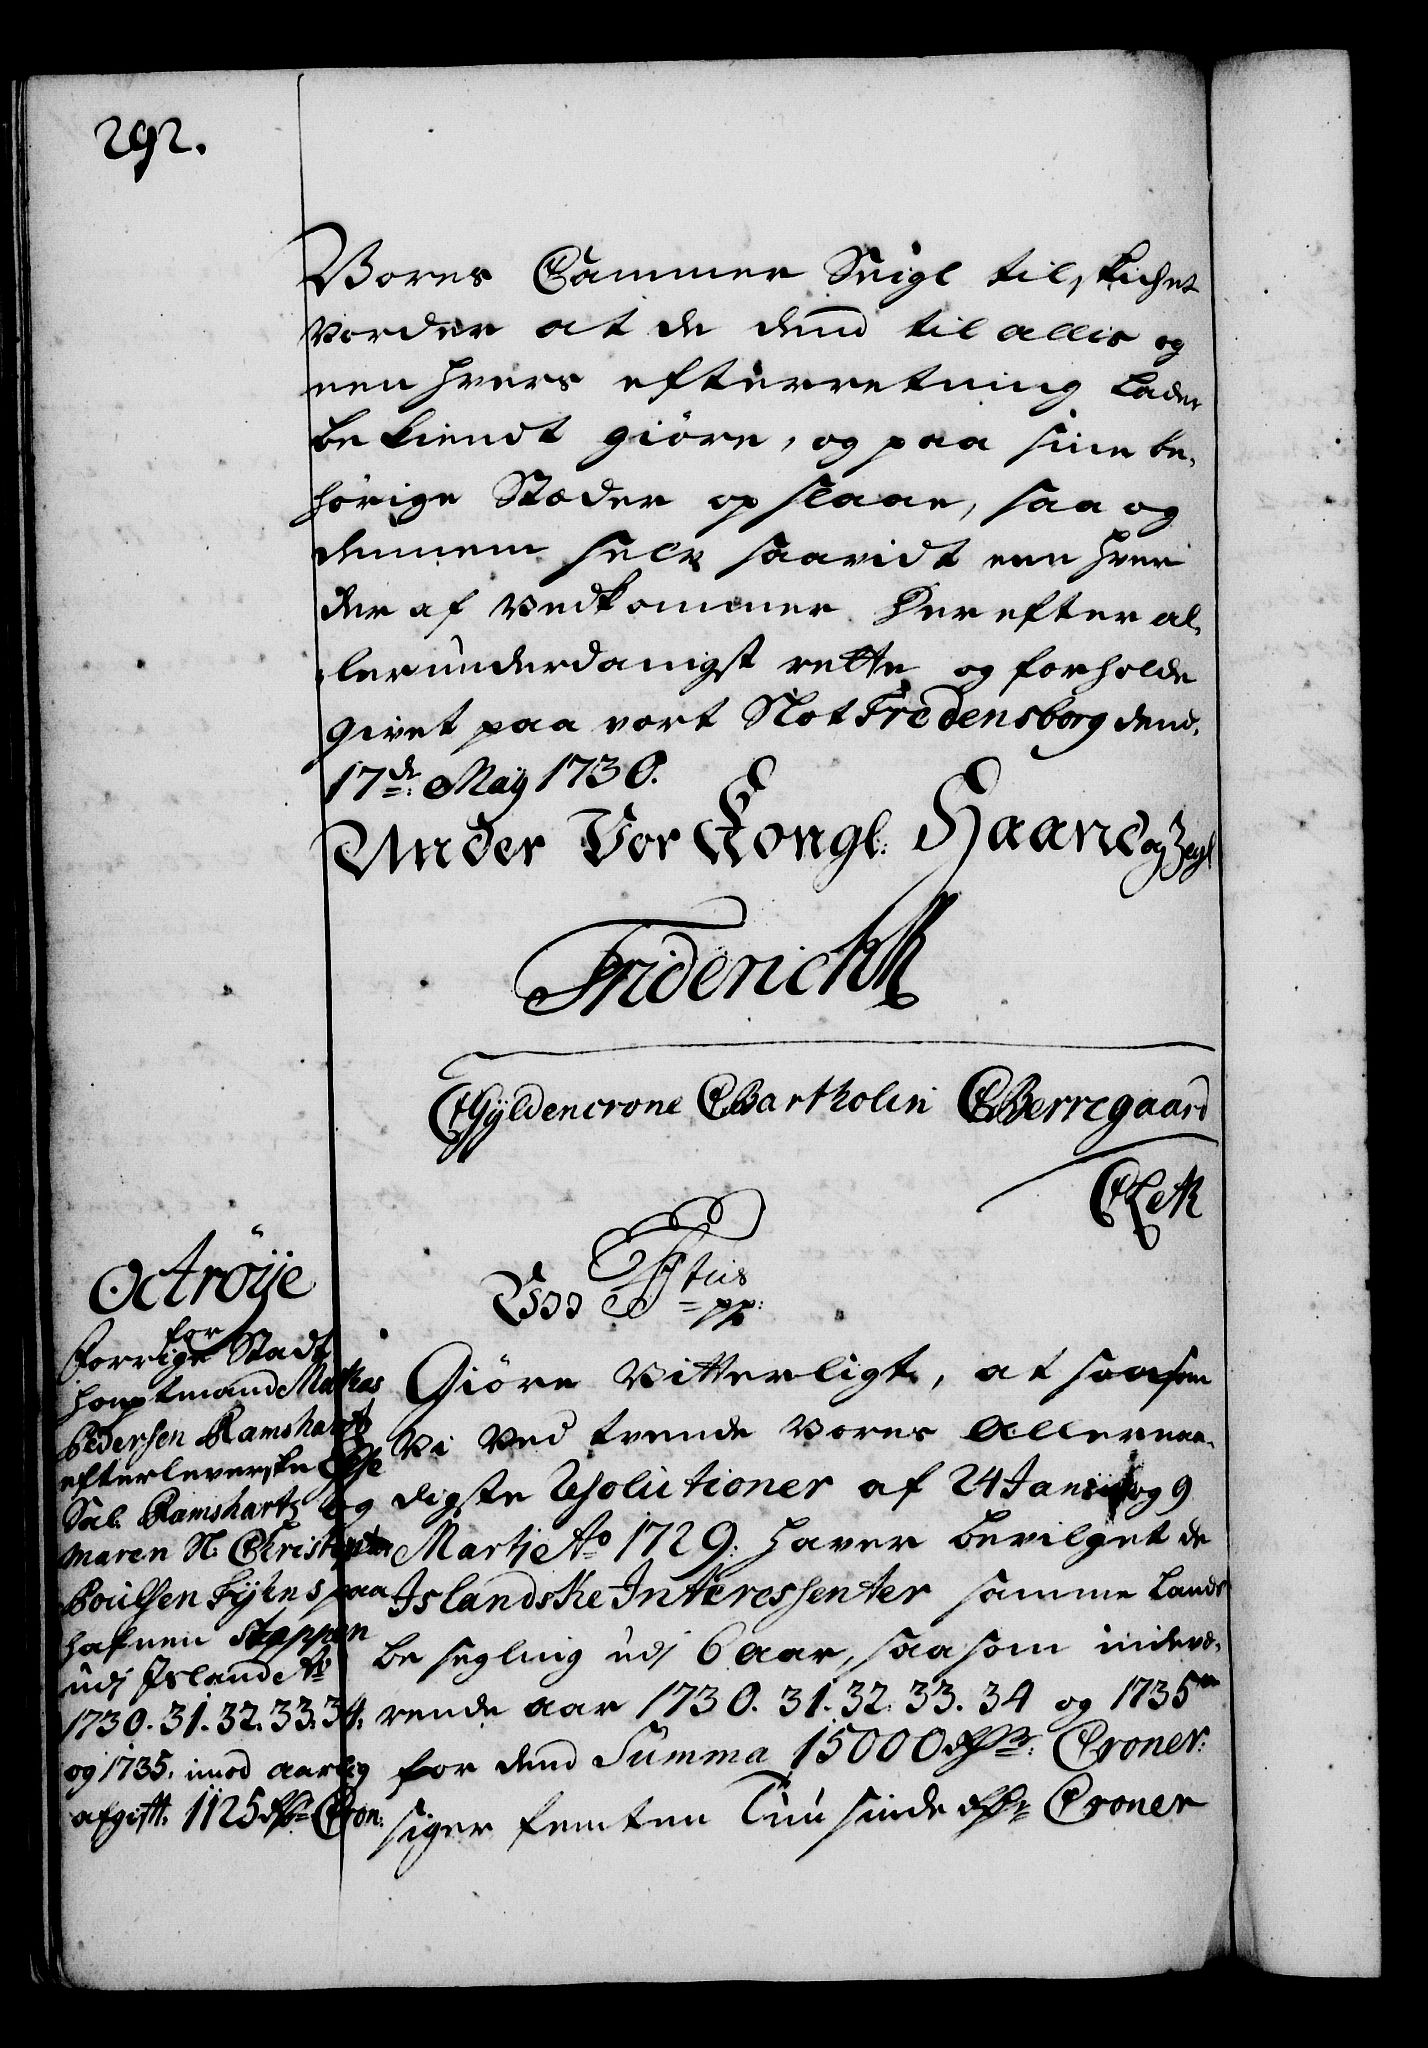 292.
Vores Cammer Seigl tilskichet
vorder at de dend til allis og
een hvers efterretning lader
bekiendt giöre, og paa sine be-
hörige Stæder op slaae, saa og
dennem selv saavidt een hver
der af vedkommer Herefter al-
lerunderdanigst rette og forholde
Givet paa vort Slot Fredensborg dend
17de May 1730.
Under Vor Kongl: Haand og Zegl
Friderich R
C Gyldencrone C Bartholin C Berregaard
Octröije
for
forrige Stadt
houptmand Mathias
Pedersen Ramshart
efterleverske Else
Sal. Ramshartz og
Maren Sl. Christopher
Poulsen Fyhns paa
hafnen Stappen
udj Island Ao
1730. 31. 32. 33. 34.
og 1735. imod aarlig
afgift. 1125 Rdr Cron:
Voss Titus
pp:
Giöre Vitterligt, at saasom
vi ved tvende Vores Allernaa-
digste Resolutioner af 24 Januarii og 9
Martj Ao 1729: haver bevilget de
Islandske Interessenter samme Lands
besegling udj 6 aar, saasom indevæ-
rende aar 1730. 31. 32. 33. 34 og 1735
for dend Summa 15000 Rdr: Croner:
siger femten Tuusinde Rdr Croner